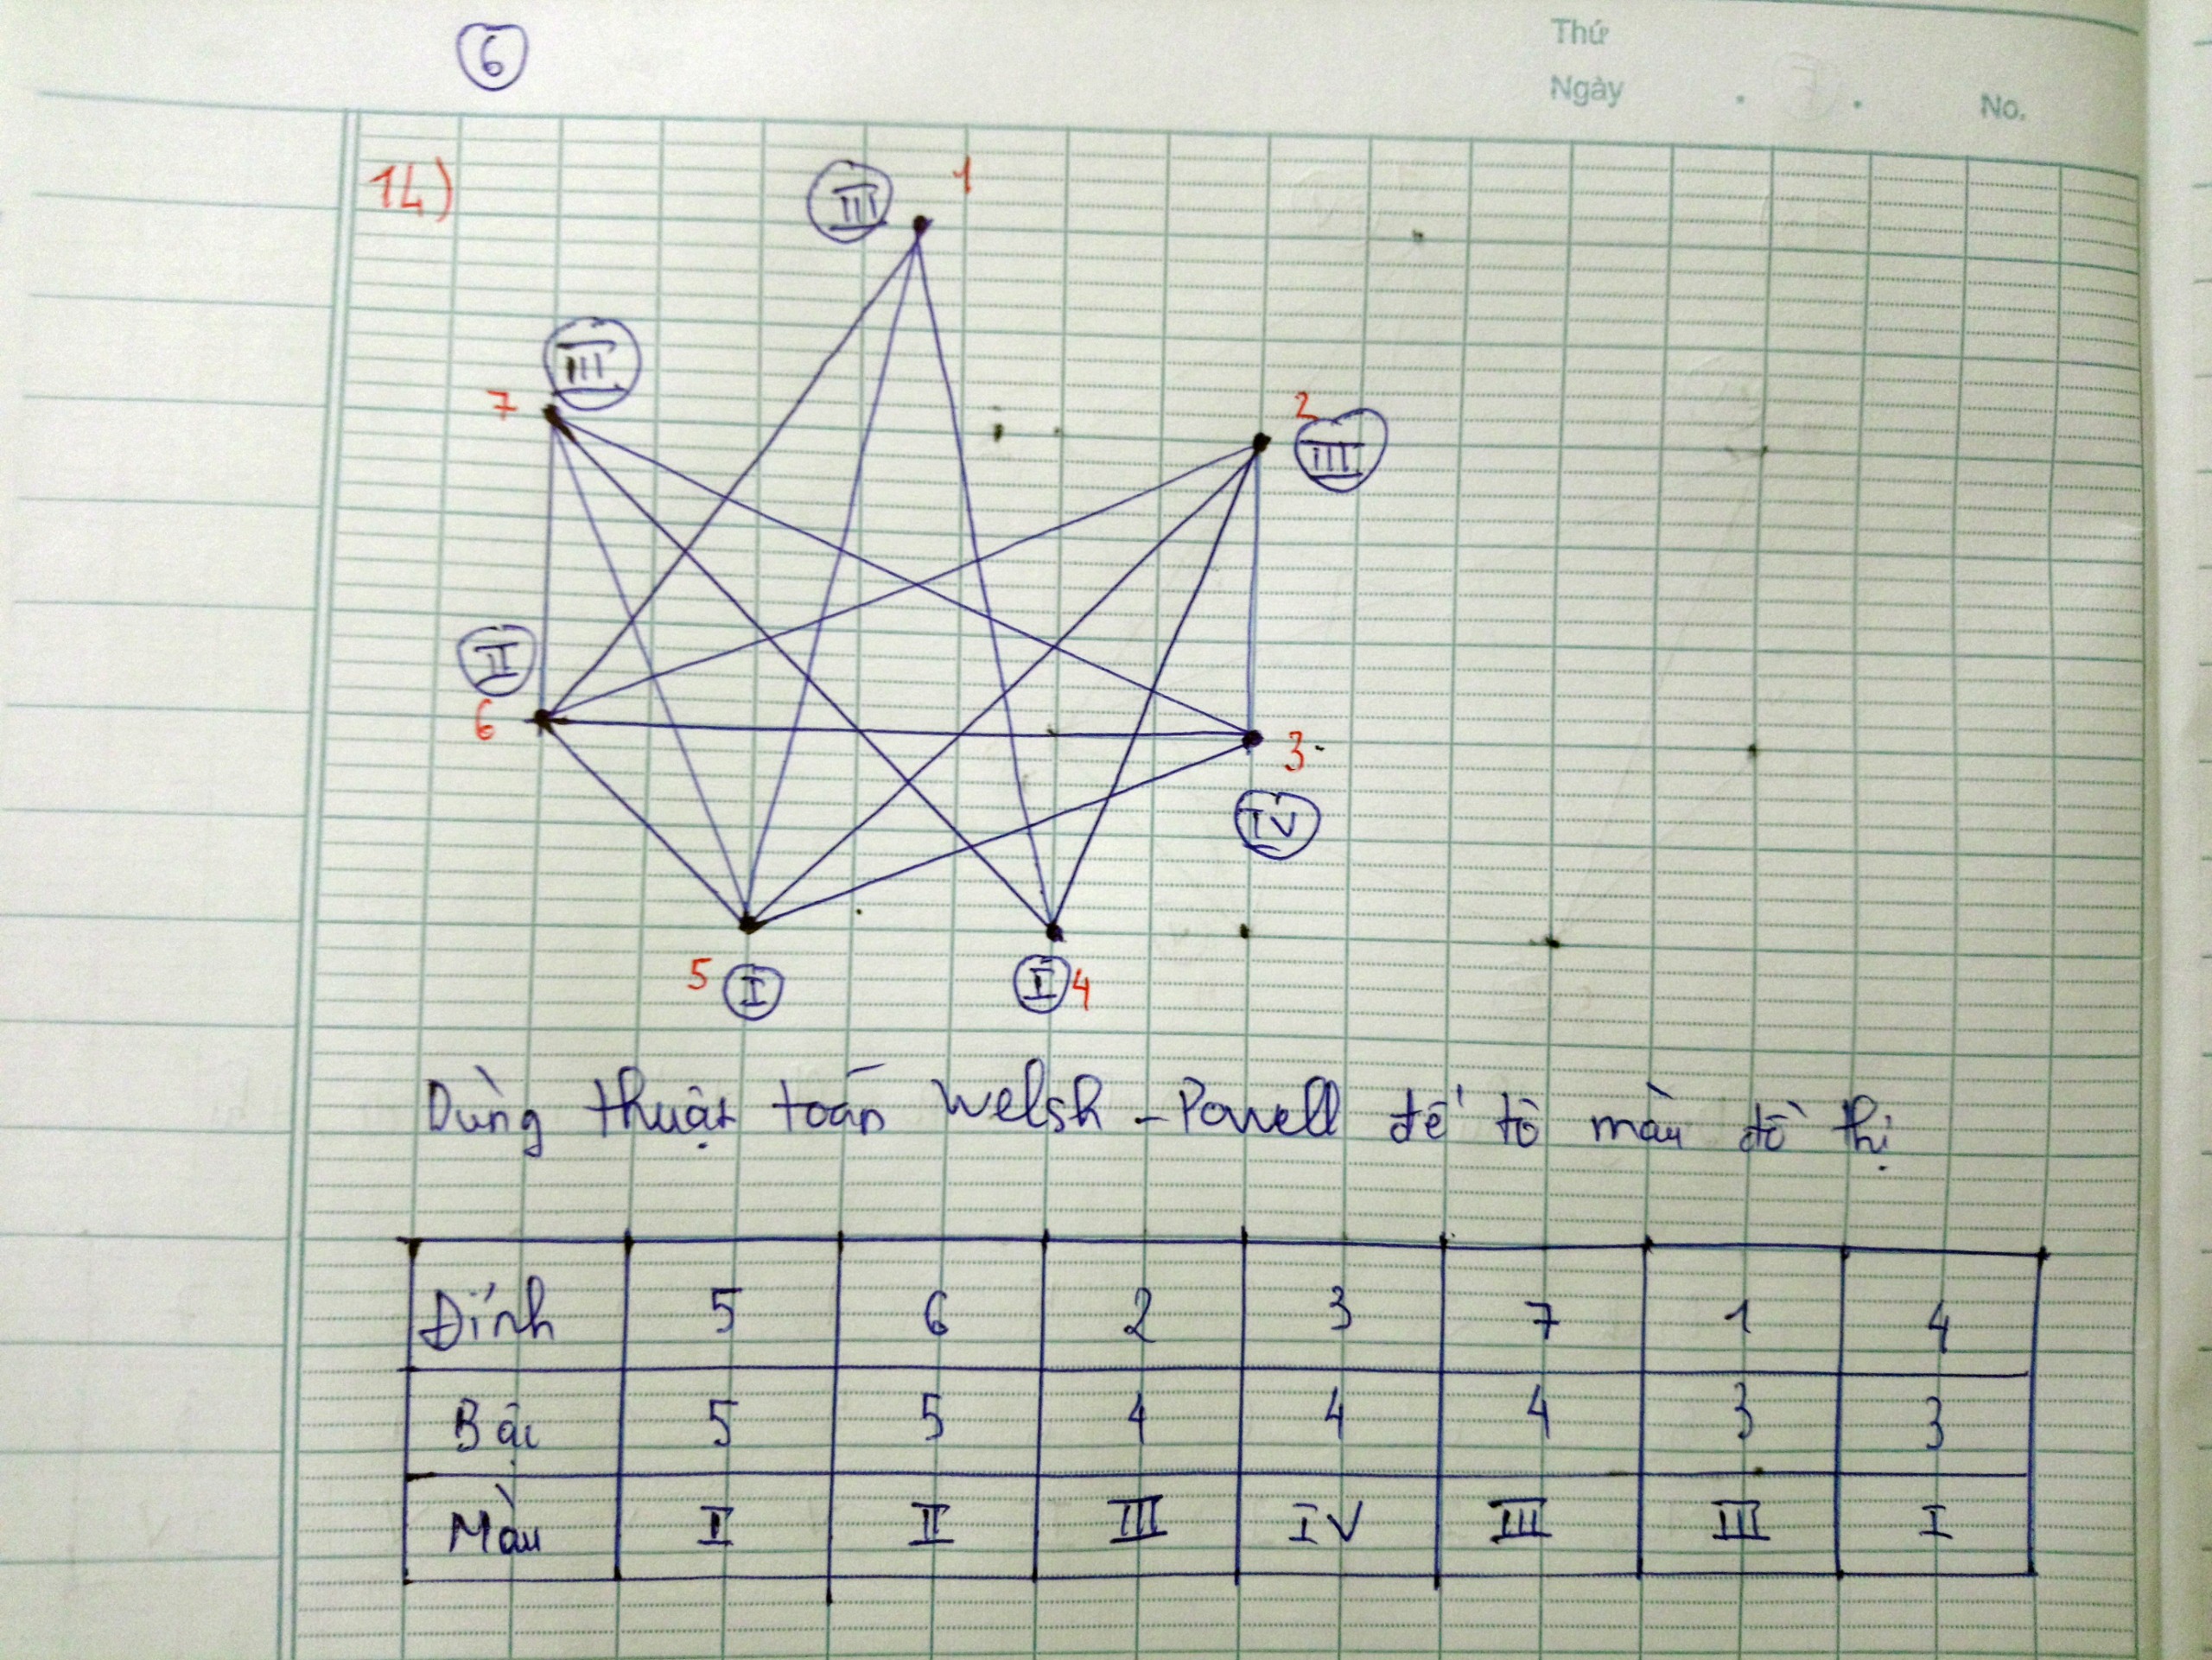 6
Thứ
Ngày
No.
14)
III 1
III
7
2
III
II
6
3
IV
5 I I 4
Dùng thuật toán Welsh-Powell để tô màu đồ thị
Đỉnh 5 6 2 3 7 1 4
Bậc 5 5 4 4 4 3 3
Màu I II III IV III III I